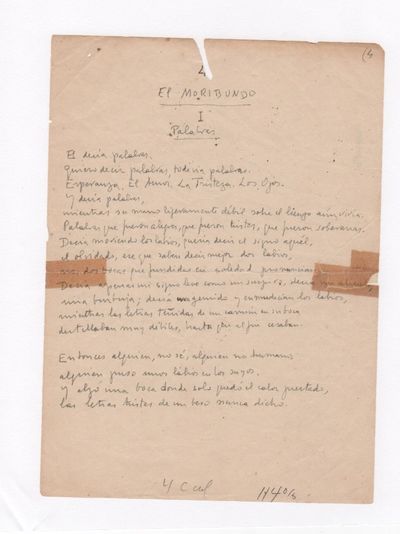 4
(4
EL MORIBUNDO
I
Palabras
El decía palabras.
Quiero decir palabras, todavía palabras.
Esperanza. El Amor. La Tristeza. Los Ojos.
Y decía palabras,
mientras su mano ligeramente débil sobre el lienzo aún vivía.
Palabras que fueron alegres, que fueron tristes, que fueron soberanas.
Decía moviendo los labios, quería decir el signo aquél,
el olvidado, ese que saben decir mejor dos labios,
no, dos bocas que fundidas en soledad pronuncian.
Decía apenas un signo leve como un suspiro, decía un
una burbuja; decía un gemido y enmudecían los labios,
mientras las letras teñidas de un carmín en su boca
destellaban muy débiles, hasta que al fin cesaban.
Entonces alguien, no sé, alguien no humano,
alguien puso unos labios en los suyos.
Y alzó una boca donde solo quedó el calor prestado,
las letras tristes de un beso nunca dicho.
4 C